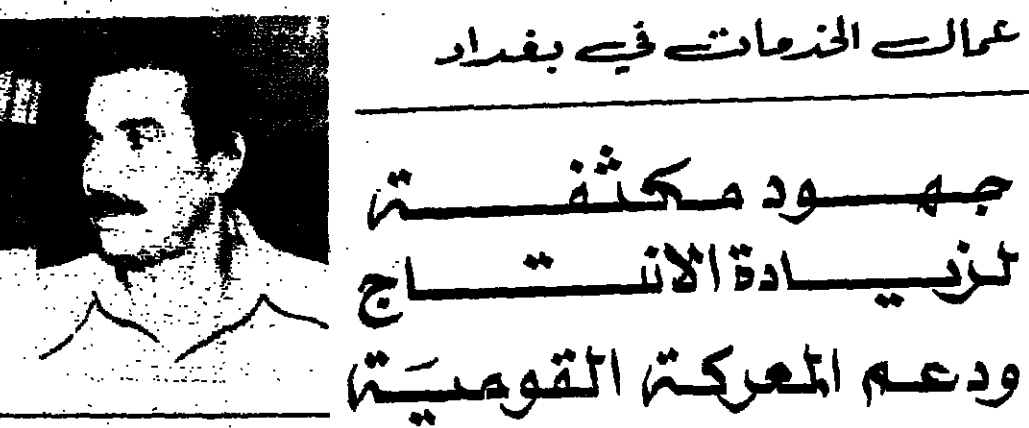 عمال الخدمات في بغداد
جهود مكثفة
لزيادة الانتاج
ودعم المعركة القومية